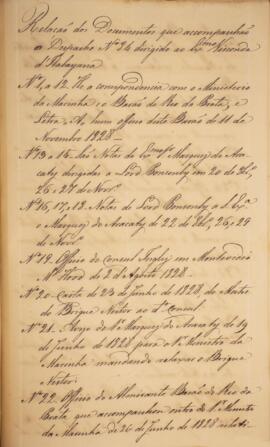 Relação dos Documentos que acompanhão
o Despacho Nº 24 dirigido ao Exmo Visconde
d'Itabayana
Nº 1, a 12. He a corespondencia com o Ministerio
da Marinha e o Barão do Rio da Prata, e
Letra A, hum officio deste Barão de 11 de
Novembro 1828
Nº 13 a 15. Notas do Exmo Sr Marquez de Ara-
caty dirigidas a Lord Ponsonby em 20 de
26 e 27 de Novro
Nº 16, 17, 18. Notas de Lord Ponsonby a S. Exa
o Marquez de Aracaty de 22 de 26, e 29
de Novro
Nº 19. Officio do Consul Inglez em Montevideo
Mr Hood de 2 de Agosto 1828.
Nº 20 Carta de 23 de Junho de 1828, do Mestre
do Brigue Nestor ao do Consul.
Nº 21. Avizo do Sr Marquez de Aracaty de 19
de Junho de 1828 para o Sr Ministro da
Marinha mandando relaxar o Brigue
Nestor.
Nº 22. Officio do Almirante Barão do Rio da
Prata que acompanhou outro do Sr Ministro
da Marinha de 26 de Junho de 1828